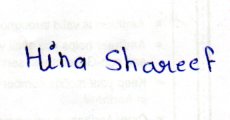 Hina Shareef